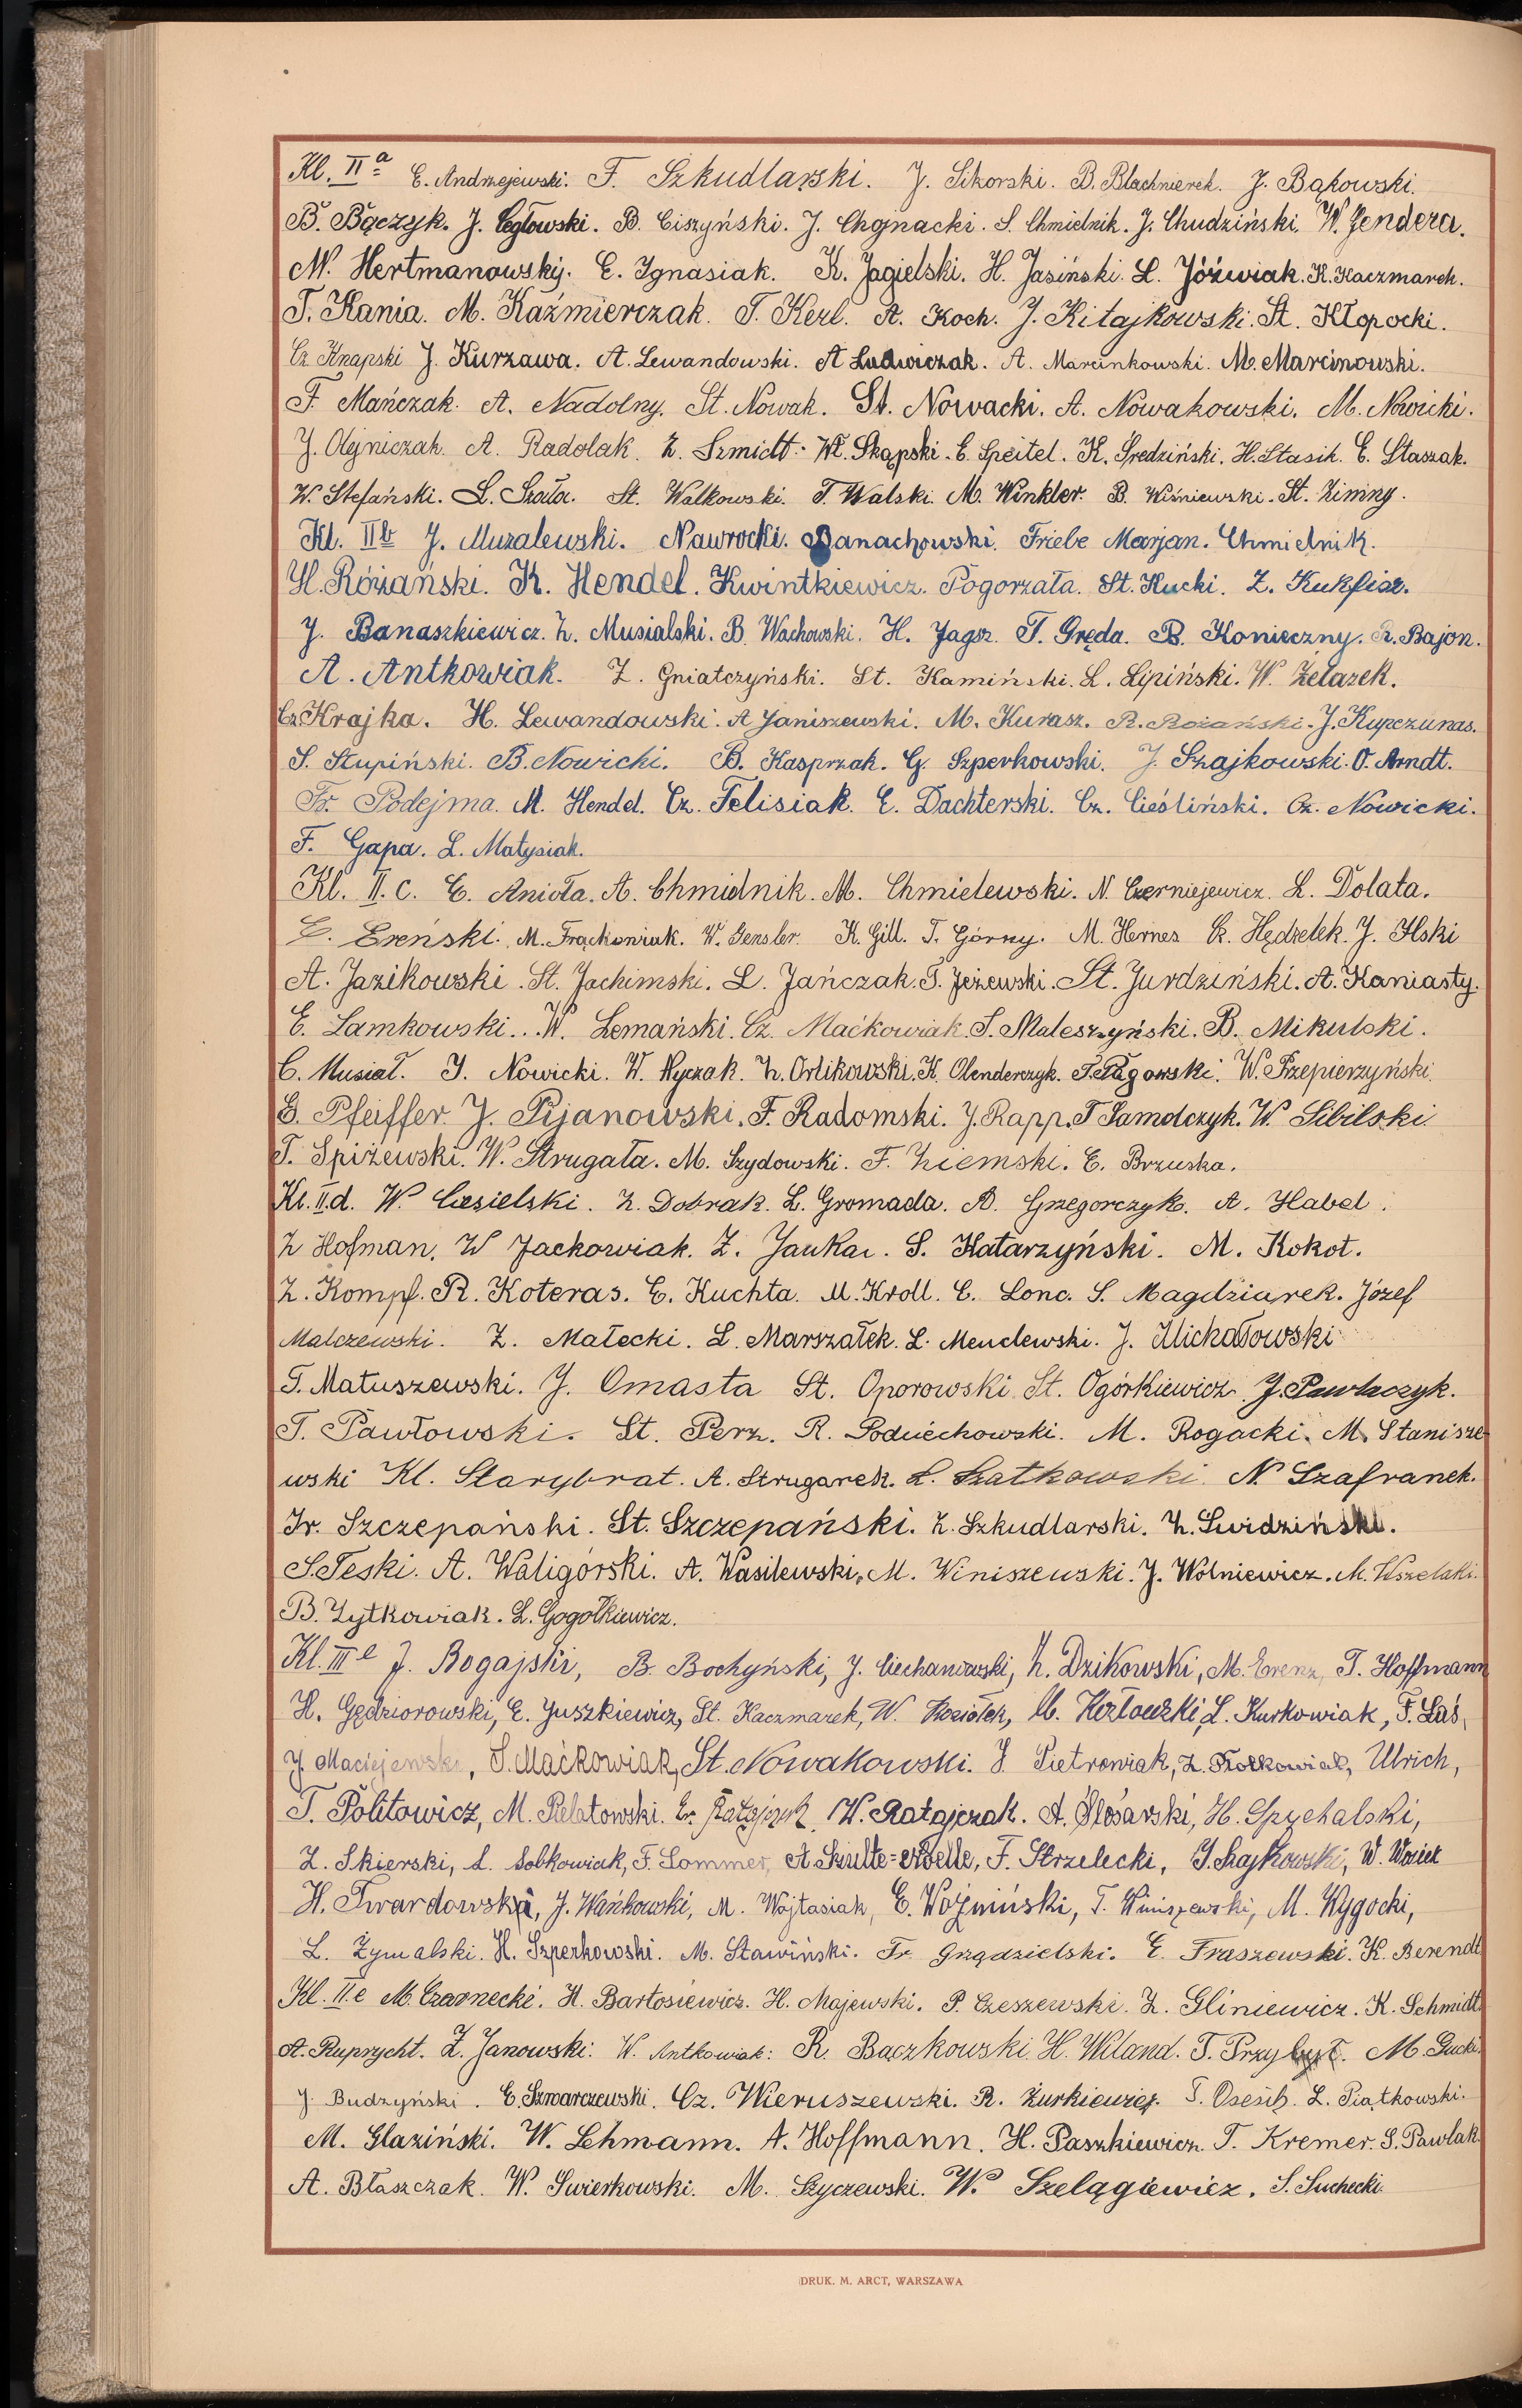 Kl. IIa E. Andrzejewski. F. Szkudlarski. J. Sikorski. B. Blachnierek. J. Bąkowski.
B. Bączyk. J. Cegłowski. B. Ciszyński. J. Chojnacki. S. Chmielnik. J. Chudziński. W. Jendera.
M. Hertmanowski. E. Ignasiak. K. Jagielski. H. Jasiński. L. Jóźwiak. K. Kaczmarek.
T. Kania. M. Kaźmierczak. T. Kerl. A. Koch. J. Kitajkowski. St. Kłopocki.
Cz. Knapski J. Kurzawa. A. Lewandowski. A Ludwiczak. A. Marcinkowski. M. Marcinowski.
F. Mańczak. A. Nadolny. St. Nowak. St. Nowacki. A. Nowakowski. M. Nowicki.
J. Olejniczak. A. Radolak. Z. Szmidt. Wł. Skąpski. E. Speitel. K. Średziński. H. Stasik. E. Staszak.
W. Stefański. L. Szała. St. Walkowski. T. Walski. M. Winkler. B. Wiśniewski. St. Zimny.
Kl. IIb J. Muzalewski. Nawrocki. Banachowski. Friebe Marjan. Chmielnik.
H. Różański. K. Hendel. Kwintkiewicz. Pogorzała. St. Kucki. Z. Kukfisz.
J. Banaszkiewicz. Z. Musialski. B. Wachowski. H. Jagsz. T. Gręda. B. Konieczny. R. Bajon.
A. Antkowiak. Z. Gniatczyński. St. Kamiński. L. Lipiński. W. Żelazek.
Cz. Krajka. H. Lewandowski. A Janiszewski. M. Kurasz. R. Rożański. J. Kupczunas.
S. Słupiński. B. Nowicki. B. Kasprzak. G. Szperkowski. J. Szajkowski. O. Arndt.
Fr. Podejma. M. Hendel. Cz. Felisiak. E. Dachterski. Cz. Cieśliński. Cz. Nowicki.
F. Gapa. L. Matysiak.
Kl. II. c. E. Anioła. A. Chmielnik. M. Chmielewski. N. Czerniejewicz. L. Dolata.
E. Ereński. M. Frąckowiak. W. Gensler. K. Gill. T. Górny. M. Hernes Cz. Hędzelek. J. Ilski
A. Jazikowski. St. Jachimski. L. Jańczak. T. Jeżewski. St. Jurdziński. A. Kaniasty.
E. Lamkowski. W. Lemański. Cz. Maćkowiak. S. Maleszyński. B. Mikulski.
C. Musiał. J. Nowicki. W. Nyczak. Z. Orlikowski. K. Olenderczyk. T. Pągowski. W. Przepierzyński.
G. Pfeiffer. J. Pijanowski. F. Radomski. J. Rapp. T Samolczyk. W. Sibilski.
T. Spiżewski. W. Strugała. M. Szydowski. F. Ziemski. E. Brzuska.
Kl. II. d. W. Ciesielski. Z. Dobrak. L. Gromada. A. Grzegorczyk. A. Habel.
Z Hofman. W Jackowiak. Z. S. Katarzyński. M. Kokot.
Z. Kompf. R. Koteras. E. Kuchta. M. Kroll. E. Lonc. S. Magdziarek. Józef
Malczewski. Z. Małecki. L. Marszałek. L. Mendlewski. J. Michałowski
T. Matuszewski. J. Omasta St. Oporowski St. Ogórkiewicz. J. Pawlaczyk.
T. Pawłowski. St. Perz. R. Podwiechowski. M. Rogacki. M. Stanisze
wski Kl. Starybrat. A. Strugarek. L. Szatkowski. N. Szafranek.
Fr. Szczepański. St. Szczepański. Z. Szkudlarski. Z. Świdziński.
S. Teski. A. Waligórski. A. Wasilewski. M. Winiszewski. J. Wolniewicz. M. Wszelaki.
B. Zytkowiak. L. Gogołkiewicz.
Kl. III e J. Bogajski, B. Bochyński, J. Ciechanowski, Z. Dzikowski, M. Erenz, T. Hoffmann
H. Gędziorowski, E. Juszkiewicz, St. Kaczmarek, W. Koziołek, M. Kozłowski, L. Kurkowiak, F. Łaś,
J. Maciejewski, S. Maćkowiak, St. Nowakowski. J. Pietrowiak, Ulrich,
T. Politowicz, M. Pielatowski. Fr. Ratajczak, W. Ratajczak. A. Ślósarski, H. Spychalski,
Z. Skierski, L. Sobkowiak, F. Sommer, A F. Strzelecki, J. Szajkowski, W. Woziek
H. Twardowski, J. Wańkowski, M. Wojtasiak, E. Woźniński, T. Winiszewski, M. Wygocki,
L. Żymalski. H. Szperkowski. M. Stawiński. Fr. Grządzielski. E. Fraszewski. K. Berendt
Kl. II. e M. Czarnecki. H. Bartosiewicz. H. Majewski. P. Czeszewski. Z. Gliniewicz. K. Schmidt.
A. Ruprycht. Z. Janowski. W. Antkowiak. R. Bączkowski. H. Wiland. T. Przybył. M. Gucki.
J. Budzyński. E. Szwarczewski. Cz. Wieruszewski. R. Żurkiewicz. L. Piątkowski.
M. Glaziński. W. Lehmann. A. Hoffmann. H. Paszkiewicz. T. Kremer. S. Pawlak.
A. Błaszczak. W. Swierkowski. M. Szyczewski. W. Szelągiewicz. S. Suchecki.
DRUK. M. ARCT, WARSZAWA